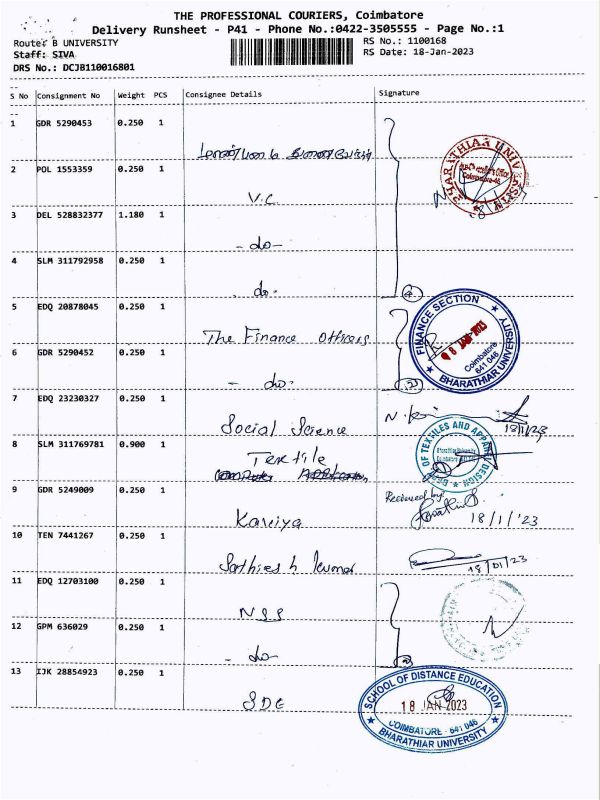 THE PROFESSIONAL COURIERS, Coimbatore
Delivery Runsheet - P41 - Phone No.:0422-3505555 - Page No.:1
Router B UNIVERSITY RS No.: 1100168
Staff: SIVA RS Date: 18-Jan-2023
DRS No.: DCJB110016801
S No Consignment No Weight PCS Consignee Details Signature
1 GDR 5290453 0.250 1
2 POL 1553359 0.250 1
V.C
3 DEL 528832377 1.180 1
- do -
4 SLM 311792958 0.250 1
- do -
5 EDQ 20878045 0.250 1
The Finance Officers
6 GDR 5290452 0.250 1
- do -
7 EDQ 23230327 0.250 1
Social Science 18/1/23
8 SLM 311769781 0.900 1
Textile
9 GDR 5249009 0.250 1
Kaviya Received by: 18/1/'23
10 TEN 7441267 0.250 1
Sathiesh Kumar 18/01/23
11 EDQ 12703100 0.250 1
NSS
12 GPM 636029 0.250 1
- do -
13 IJK 28854923 0.250 1
SDE
BHARATHIAR UNIVERSITY
Coimbatore-46
FINANCE SECTION
18 JAN 2023
Coimbatore
641 046
BHARATHIAR UNIVERSITY
DEPT OF TEXTILES AND APPAREL DESIGN
Bharathiar University
SCHOOL OF DISTANCE EDUCATION
18 JAN 2023
COIMBATORE - 641 046
BHARATHIAR UNIVERSITY